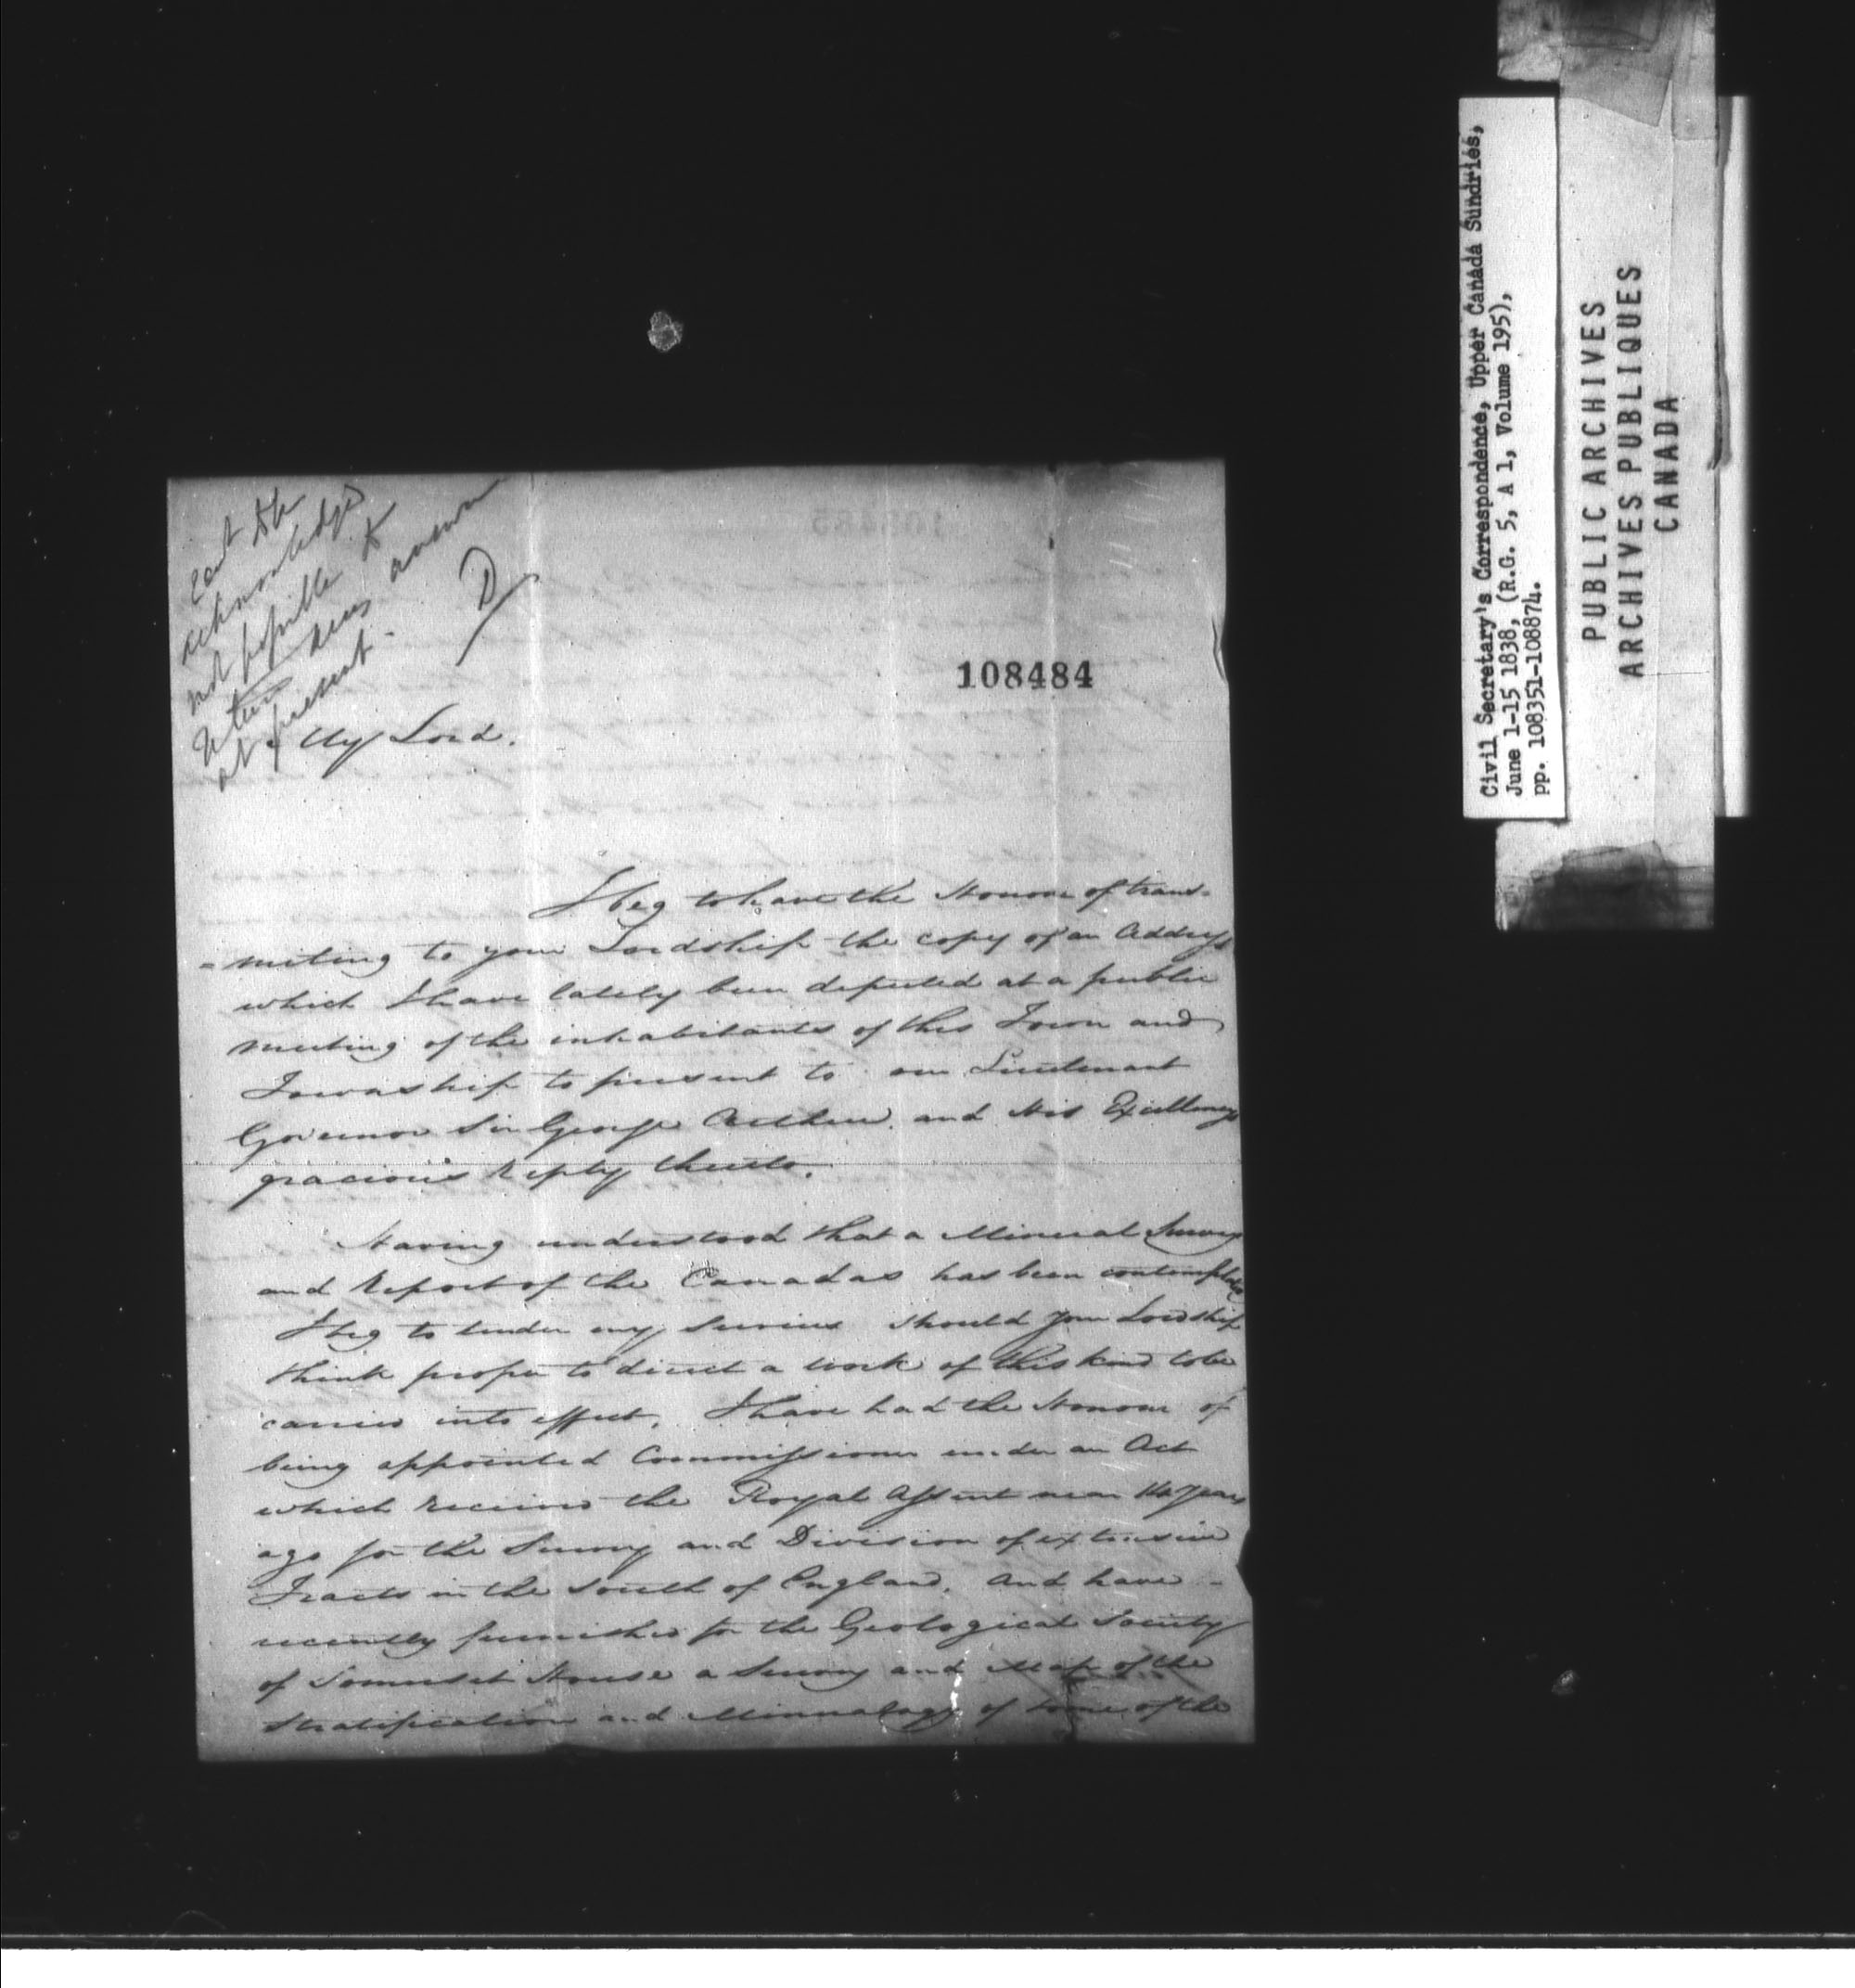 acknowledge
not possible to
at present.
D
108484
My Lord.
I beg to have the Honour of trans-
=miting to your Lordship the copy of an Address
which I have lately been deputed at a public
meeting of the inhabitants of this Town and
Township to present to our Lieutenant
Governor Sir George Arthur. and His Excellency's
gracious Reply thereto.
Having understood that a Mineral Survey
and Report of the Canadas has been contemplated
I beg to tender my services should your Lordship
think proper to direct a work of this kind to be
carried into effect. I have had the Honour of
being appointed Commissioner under an Act
which received the Royal Assent near 14 years
ago for the Survey and Division of extensive
Tracts in the South of England. And have
recently furnished for the Geological Society
of Somerset House a Survey and Map of the
Stratification and Minnalogy of some of the
Civil Secretary's Correspondence, Upper Canada Sundries,
June 1-15 1838, (R.G. 5, A 1, Volume 195),
pp. 108351-108874.
PUBLIC ARCHIVES
ARCHIVES PUBLIQUES
CANADA